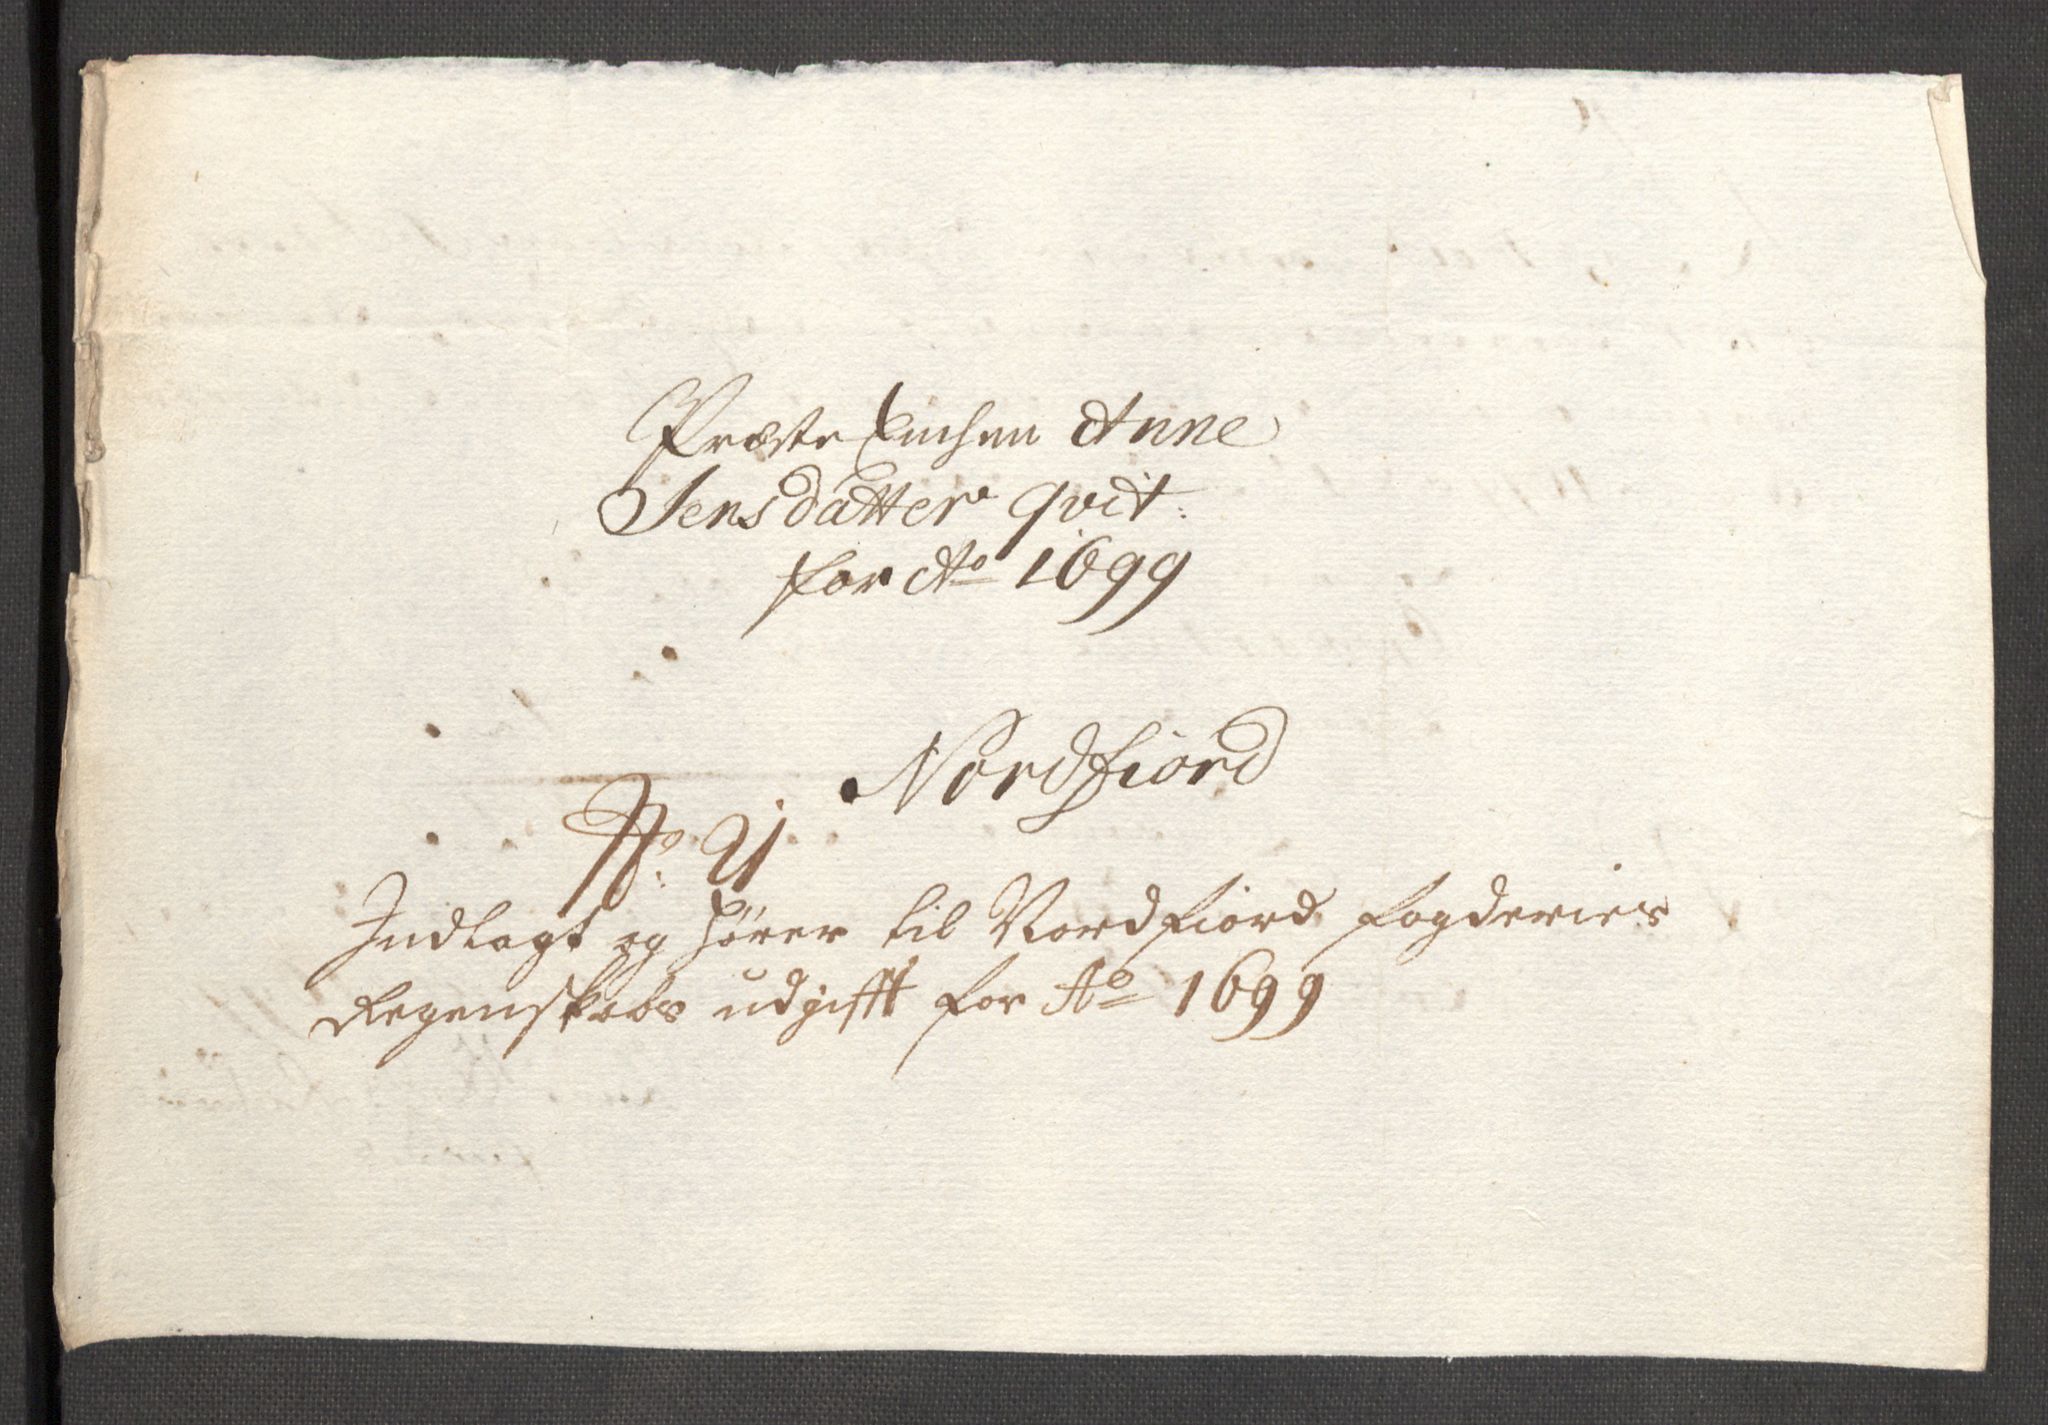 Præste Enchen Anne
Jensdatter qvit:
for Ao 1699
Nordfiord
No. 21
Indlagt og hører til Nordfiord fogderies
Regenskabs udgifft for Ao 1699